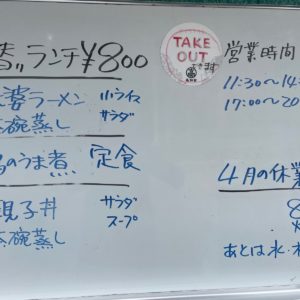 ランチ¥800
TAKE OUT
できます
営業時間
11:30〜14:
17:00〜20
婆ラーメン 小ライス
茶碗蒸し サラダ
のうま煮 定食
4月の休業
親子丼 サラダ
茶碗蒸し スープ
8
あとは水・木